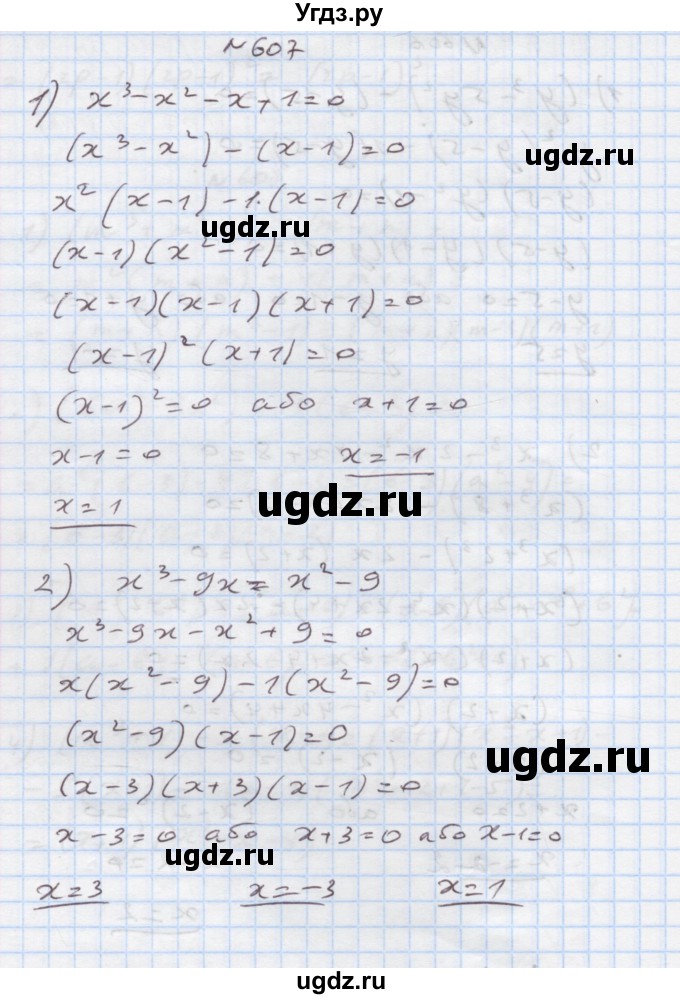 Угдз.ру
№607
1) x³-x²-x+1=0
(x³-x²)-(x-1)=0
x²(x-1)-1·(x-1)=0
(x-1)(x²-1)=0
(x-1)(x-1)(x+1)=0
(x-1)²(x+1)=0
(x-1)²=0 або x+1=0
x-1=0 x=-1
x=1
2) x³-9x=x²-9
x³-9x-x²+9=0
x(x²-9)-1(x²-9)=0
(x²-9)(x-1)=0
(x-3)(x+3)(x-1)=0
x-3=0 або x+3=0 або x-1=0
x=3 x=-3 x=1
ugdz.ru
ugdz.ru
ugdz.ru
ugdz.ru
ugdz.ru
ugdz.ru